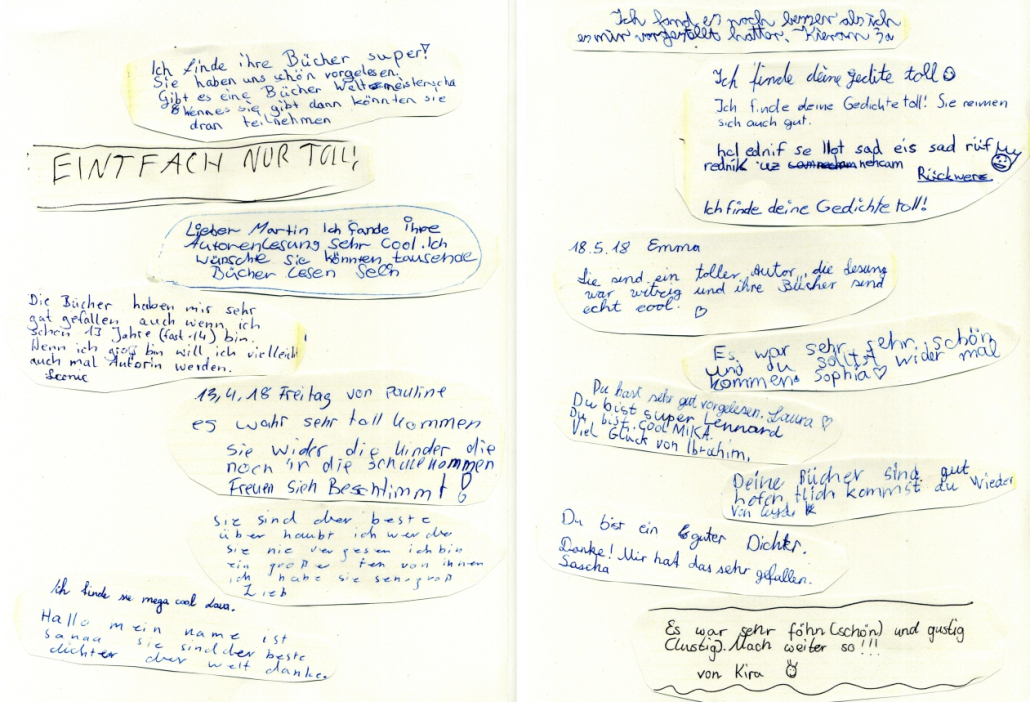 Ich finde ihre Bücher super!
Sie haben uns schön vorgelesen.
Gibt es eine Bücher Weltmeisterscha
Wenn es sie gibt dann könnten sie
dran teilnehmen
EINTFACH NUR TOLL!
Lieber Martin Ich fande ihre
Autorenlesung sehr Cool. Ich
wünschte sie könnten tausende
Bücher Lesen
Die Bücher haben mir sehr
gut gefallen, auch wenn ich
schon 13 Jahre (fast 14) bin.
Wenn ich groß bin will ich vielleicht
auch mal Autorin werden.
13,4,18 Freitag von Pauline
es wahr sehr toll kommen
sie wider die kinder die
noch in die schule kommen
Freuen sich Beschtimmt!
sie sind der beste
über haubt ich werde
sie nie vergesen ich bin
ein großer fen von ihnen
ich habe sie sehr groß
Lieb
Ich finde sie mega cool
Hallo mein name ist
sanaa sie sind der beste
dichter der welt danke.
Ich fand es noch besser als ich
es mir vorgestellt hatte. Kieran 3a
Ich finde deine gedite toll
Ich finde deine Gedichte toll! Sie reimen
sich auch gut.
hcI ednif se llot sad eis sad rüf
rednik uz nehcam
Rückwerz
Ich finde deine Gedichte toll!
18.5.18 Emma
Sie sind ein toller Autor, die lesung
war witzig und ihre Bücher sind
echt cool. ♡
Es war sehr, sehr, schön
und du sollst wider mal
kommen. Sophia ♡
Du hast sehr gut vorgelesen. Laura ♡
Du bist super Lennard
Du bist Cool MIKA.
Viel Glück von Ibrahim.
Deine Bücher sind gut
hofentlich kommst du Wieder
von
Du bist ein guter Dichter.
Danke! Mir hat das sehr gefallen.
Sascha
Es war sehr föhn (schön) und gustig
(lustig). Mach weiter so!!!
von Kira